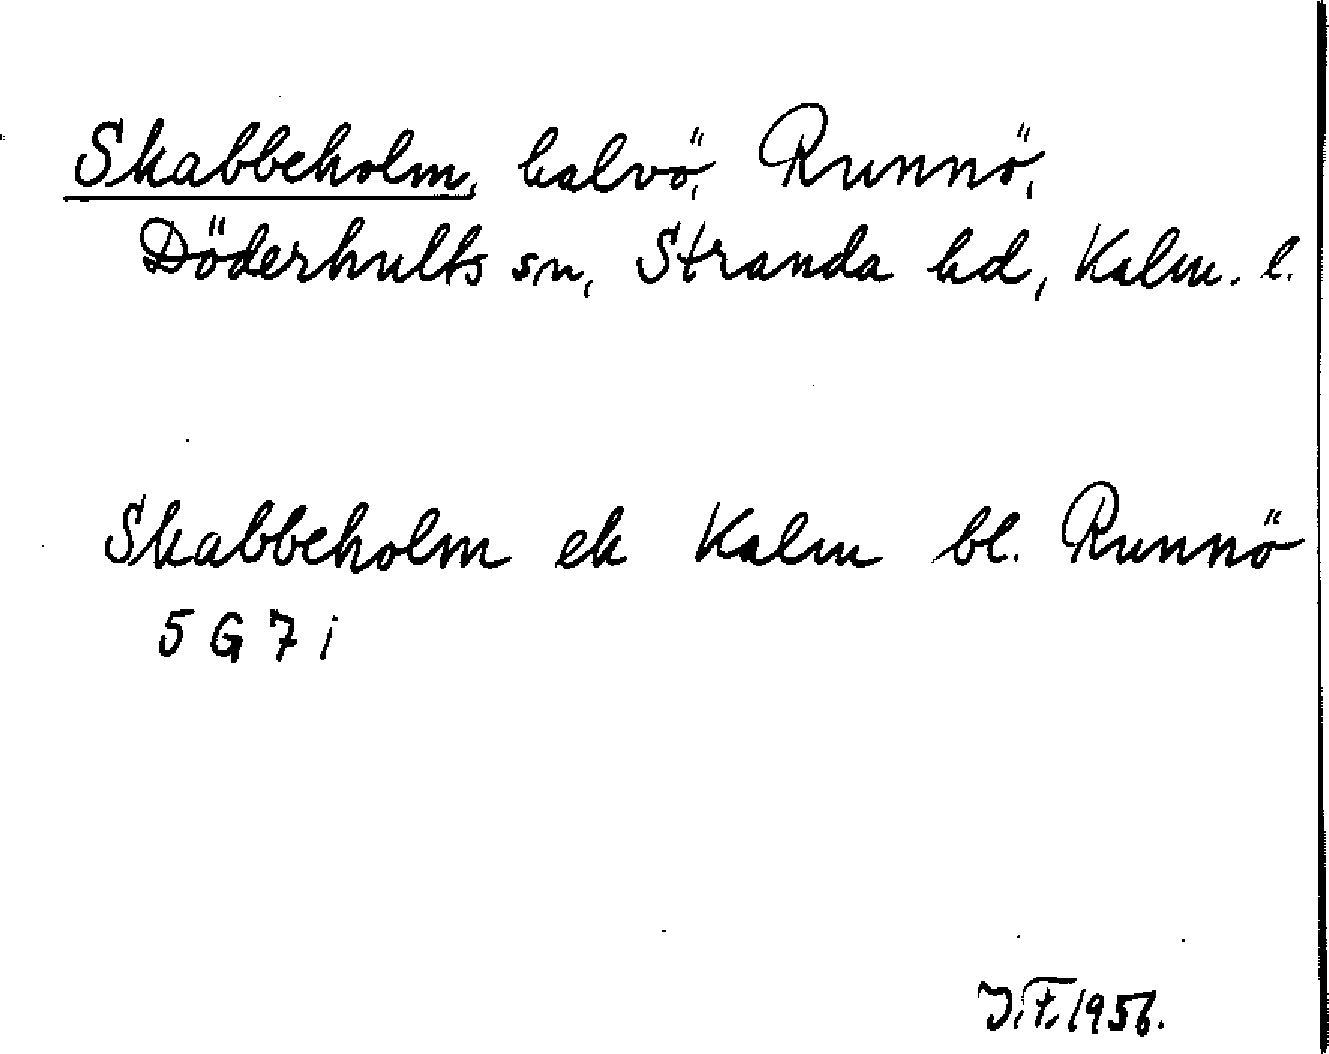 Skabbeholm, halvö, Runnö,
Döderhults sn, Stranda hd, Kalm. l.
Skabbeholm ek Kalm bl. Runnö
5 G 7 i
J.F. 1956.